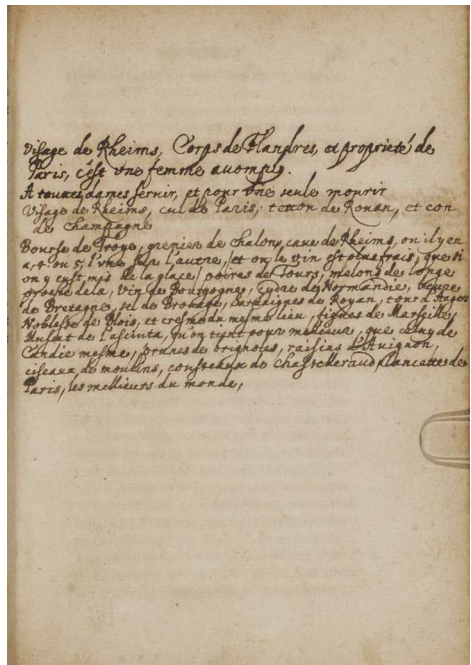 Visage de Rheims, Corps de Flandres, et proprieté de
Paris, c'est une femme
A toutes dames servir, et pour une seule mourir
Visage de Rheims, cul de Paris, teton de Rouan, et con
de champagne
Bourse de Troye, grenier de chalons, cave de Rheims, ou il y en
a, 4. ou 5, l'une sur l'autre, et ou le vin est plus frais, que si
on y eust mis de la glace, poires de Tours, melons de Langes
vin de Bourgogne, cydre de Normandie, beurre
de Bretagne, sel de Brouage, de Royan, tour d'Angers
Noblesse de Blois, et cresme du mesme lieu, figues de Marseille,
Muscat de qu'on tient pour meilleur, que celuy de
Candie mesme, prunes de brignoles, raisins d'Avignon,
ciseaux de moulins, cousteaux de Chastelleraud, lancettes de
Paris, les meilleurs du monde,